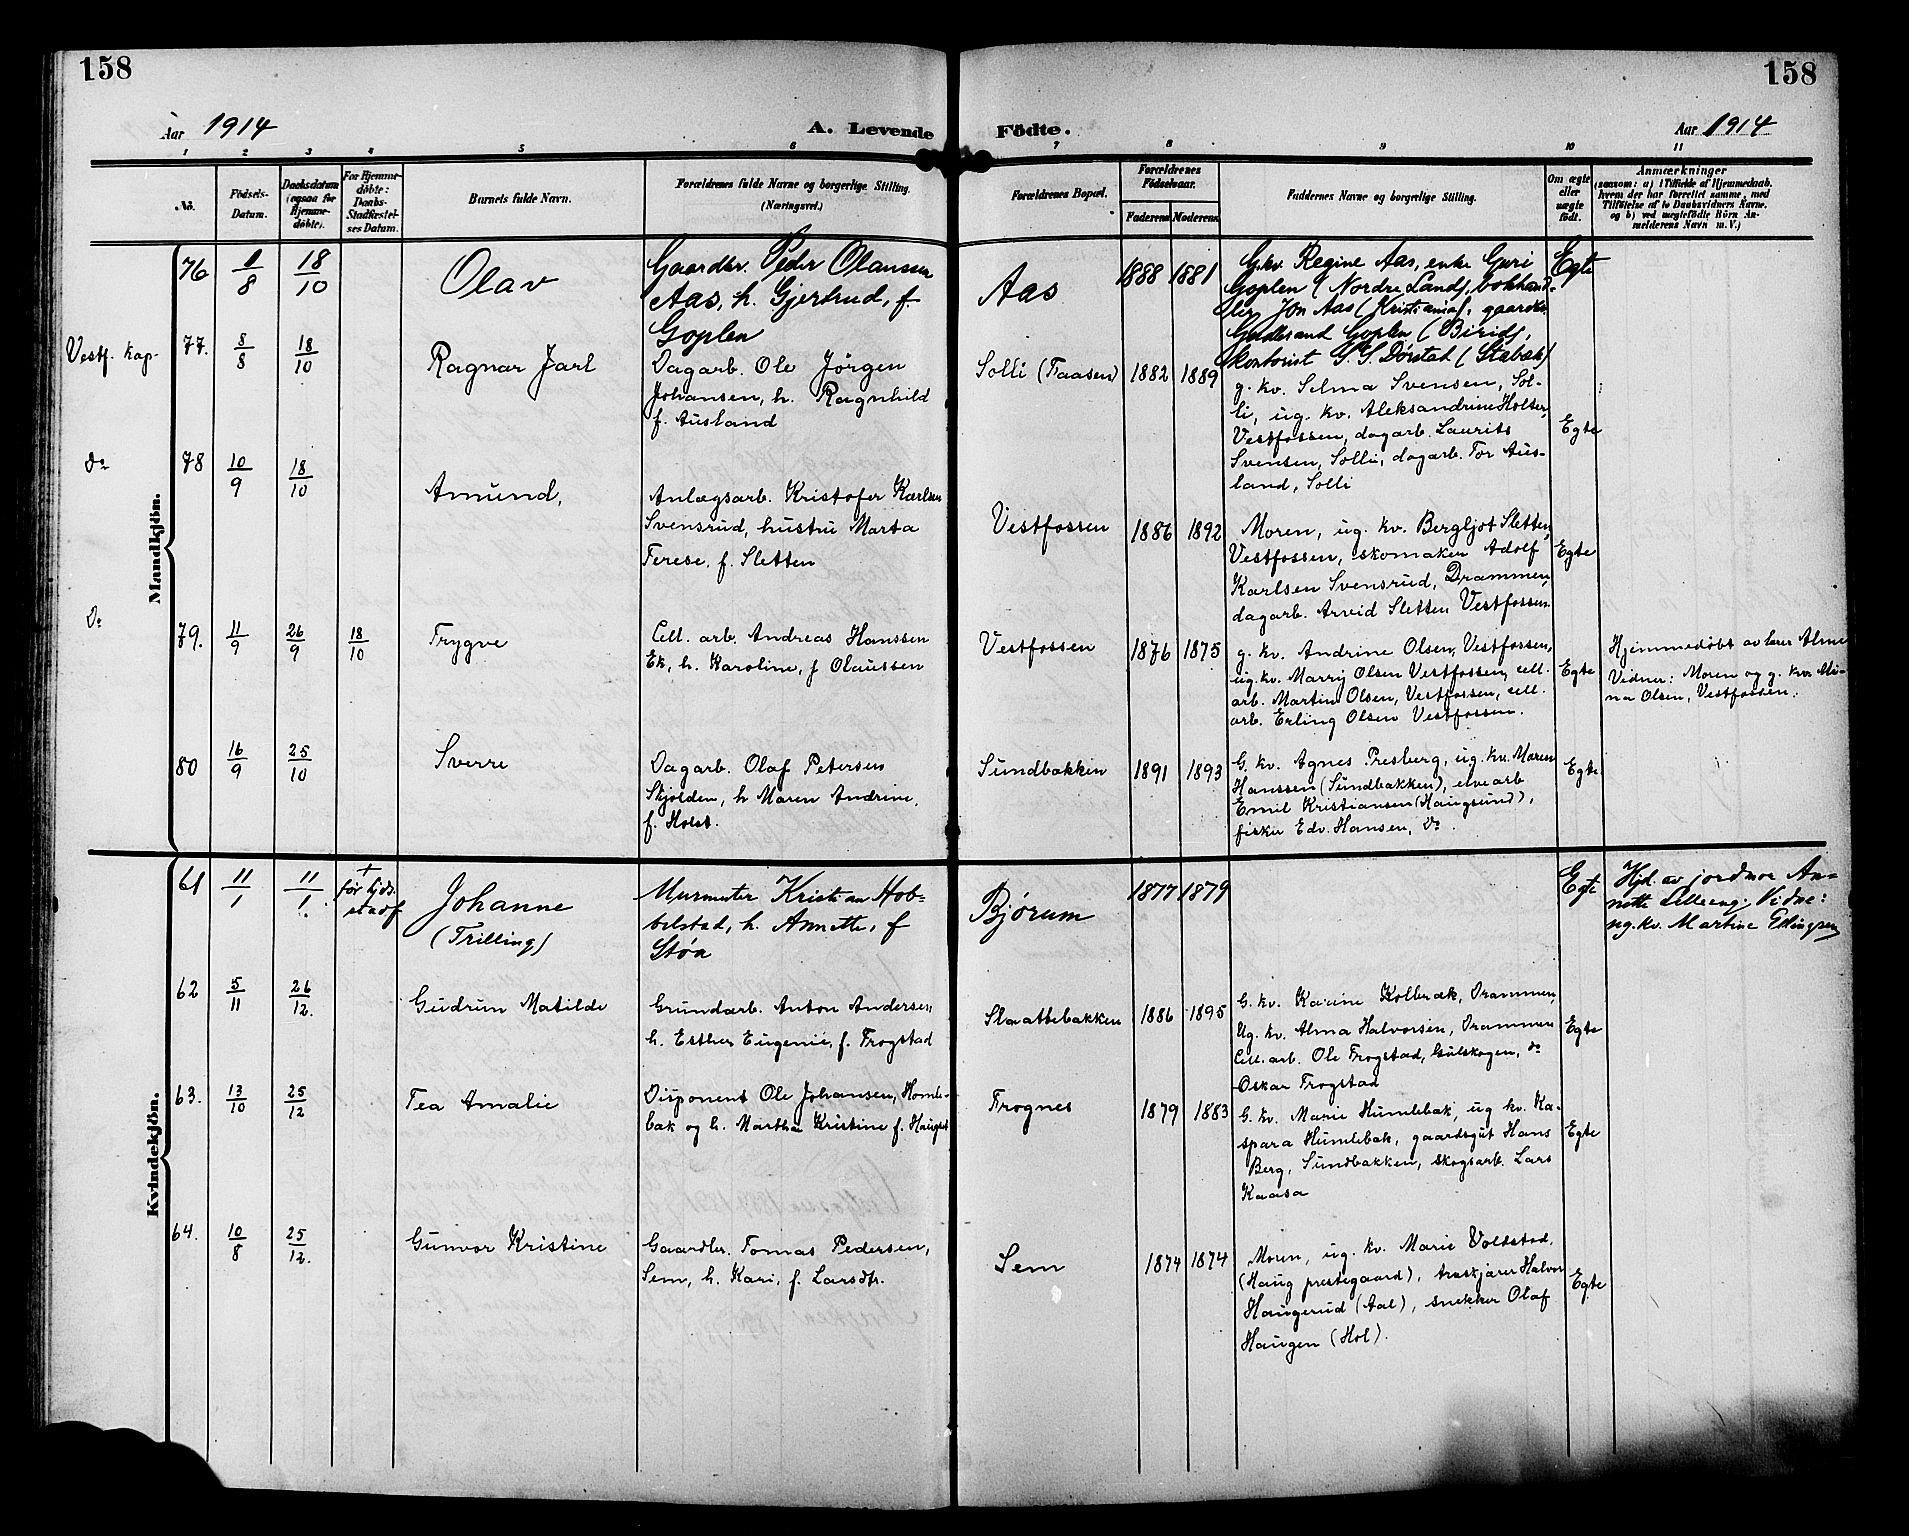 158
158
Aar 1914
A. Levende Födte.
Aar 1914
1 2 3 4 5 6 7 8 9 10 11
No.
Födsels-
Datum.
Daabsdatum
(ogsaa for
Hjemme-
döbte).
For Hjemme-
döbte:
Daabs-
Stadfæstel-
ses Datum.
Barnets fulde Navn.
Forældrenes fulde Navne og borgerlige Stilling.
(Næringsvei.)
Forældrenes Bopæl.
Forældrenes
Födselsaar.
Faderens Moderens
Faddernes Navne og borgerlige Stilling.
Om ægte
eller
uægte
födt.
Anmærkninger
(saasom: a) i Tilfælde af Hjemmedaab,
hvem der har forrettet samme, med
Tilföielse af to Daabsvidners Navne,
og b) ved uægtefödte Börn An-
melderens Navn m. V.)
Mandkjön.
76 1/8 18/10
Olav
Gaardbr. Peder Olaussen
Aas, h. Gjertrud, f.
Goplen
Aas
1888 1881
G.kv. Regine Aas, enke Guri
Goplen (Nordre Land), bokhand-
ler Jon Aas (Kristiania), gaardbr.
Gudbrand Goplen (Birid),
kontorist S. S. Dørstad (Stabæk)
Egte
Vestf. kap.
77. 8/8 18/10
Ragnar Jarl
Dagarb. Ole Jørgen
Johansen, h. Ragnhild
f. Ausland
Solli (Faasen)
1882 1889
g. kv. Selma Svensen, Sol-
li, ug. kv. Aleksandrine Holter,
Vestfossen, dagarb. Laurits
Svensen, Solli, dagarb. Tor Aus-
land, Solli
Egte
do
78 10/9 18/10
Amund,
Anlægsarb. Kristofer Karlsen
Svensrud, hustru Marta
Terese, f. Sletten
Vestfossen
1886 1892
Moren, ug. kv. Bergljot Sletten,
Vestfossen, skomaker Adolf
Karlsen Svensrud, Drammen,
dagarb. Arvid Sletten Vestfossen
Egte
do
79. 11/9 26/9 18/10
Trygve
Cell. arb. Andreas Hanssen
Ek, h. Karoline, f Olaussen
Vestfossen
1876 1875
g. kv. Andrine Olsen, Vestfossen,
ug. kv. Marry Olsen Vestfossen, cell.
arb. Martin Olsen, Vestfossen, cell.
arb. Erling Olsen Vestfossen.
Egte
Hjemmedøbt av lærer Alme
Vidner: Moren og g. kv. Mi-
na Olsen, Vestfossen.
80 16/9 25/10
Sverre
Dagarb. Olaf Petersen
Skjolden, h Maren Andrine,
f. Holst.
Sundbakken
1891 1893
G. kv. Agnes Presberg, ug. kv. Maren
Hanssen (Sundbakken), elvearb
Emil Kristiansen (Haugsund),
fisker Edv. Hansen, do.
Egte
Kvindekjön.
61 11/1 11/1
+
før kjds.
stadf
Johanne
(Trilling)
Murmester Kristian Hob-
belstad, h. Annette, f
Støa
Bjørum
1877 1879
Egte
Hjd. av jordmor An-
nette Lilleeng. Vidne:
ug. kv. Martine Ellingsen
62 5/11 26/12.
Gudrun Matilde
Grundarb. Anton Andersen,
h. Esther Eugenie, f. Frogstad
Slaattebakken
1886 1895
G. kv. Karine Kolbræk, Drammen,
Ug. kv. Alma Halvorsen, Drammen
Cell. arb. Ole Frogstad, Gulskogen, do
Oskar Frogstad
Egte
63. 13/10 25/12
Tea Amalie
Disponent Ole Johansen, Homle-
bak og h. Martha Kristine f. Haugst
Frognes
1879 1883
G. kv. Marie Humlebak, ug kv. Ka-
spara Humlebak, gaardsgut Hans
Berg, Sundbakken, skogsarb. Lars
Kaasa
Egte
64. 10/8 25/12.
Gunvor Kristine
Gaardbr. Tomas Pedersen,
Sem, h. Kari, f. Larsdtr.
Sem
1874 1874
Moren, ug. kv. Marie Voldstad,
(Haug prestegaard), træskjærer Halvor
Haugerud (Aal), snekker Olaf
Haugen (Hol).
Egte